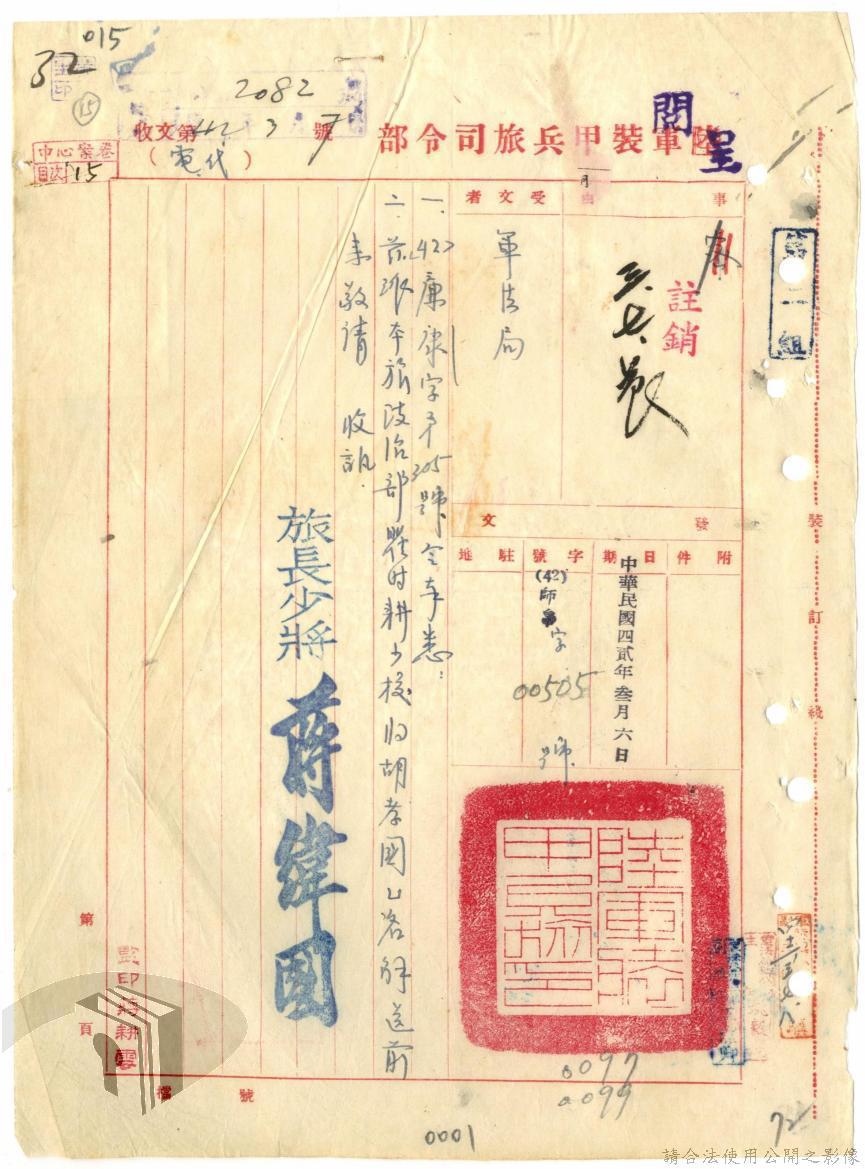 015
32
2082
收文第 42 3 7 號
(電代)
中心案卷
目次 15
15
陸軍裝甲兵旅司令部
閱
呈
第二組
事由
受文者
註銷
軍法局
發文
附件
日期
字號
駐地
中華民國四貳年叁月六日
(42)
師
字
00505
號
一、(42)廉康字第305號令奉悉:
二、茲派本旅政治部瞿时耕少校将胡孝国乙名解送前
来敬请 收訊.
旅長少將 蔣緯國
監印蔣耕雲
第
頁
檔號
裝
訂
線
0097
0099
0001
72
請合法使用公開之影像